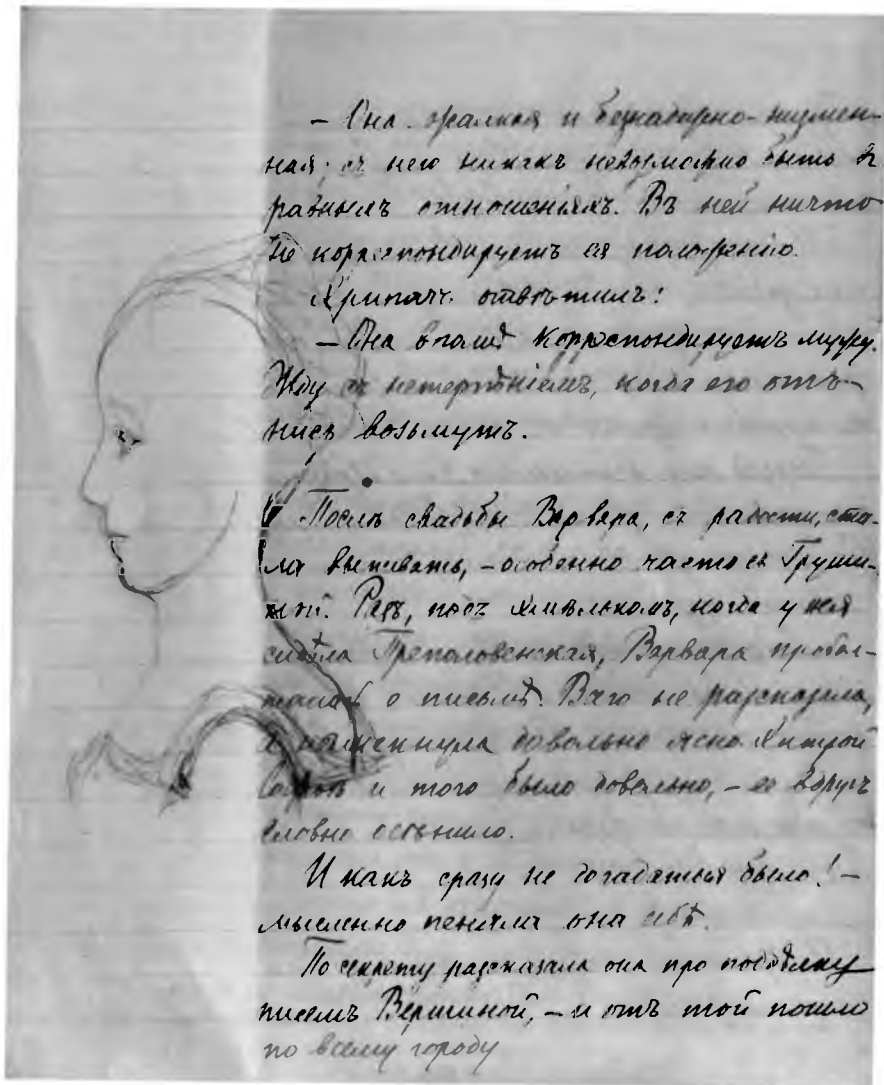 — Она жалкая и безнадежно-низмен-
ная; съ нею никакъ невозможно быть въ
равныхъ отношеніяхъ. Въ ней ничто
не корреспондируетъ ея положенію.
Хрипачъ отвѣтилъ:
— Она вполнѣ корреспондируетъ мужу.
Жду съ нетерпѣніемъ, когда его отъ
насъ возьмутъ.
Послѣ свадьбы Варвара, съ радости, ста-
ла выпивать, — особенно часто съ Груши-
ной. Разъ, подъ хмѣлькомъ, когда у нея
сидѣла Преполовенская, Варвара пробол-
талась о письмѣ. Всего не разсказала,
а намекнула довольно ясно. Хитрой
Софьѣ и того было довольно, — ее вдругъ
словно осѣнило.
И какъ сразу не догадаться было! —
мысленно пеняла она себѣ.
По секрету разсказала она про поддѣлку
писемъ Вершиной, — и отъ той пошло
по всему городу